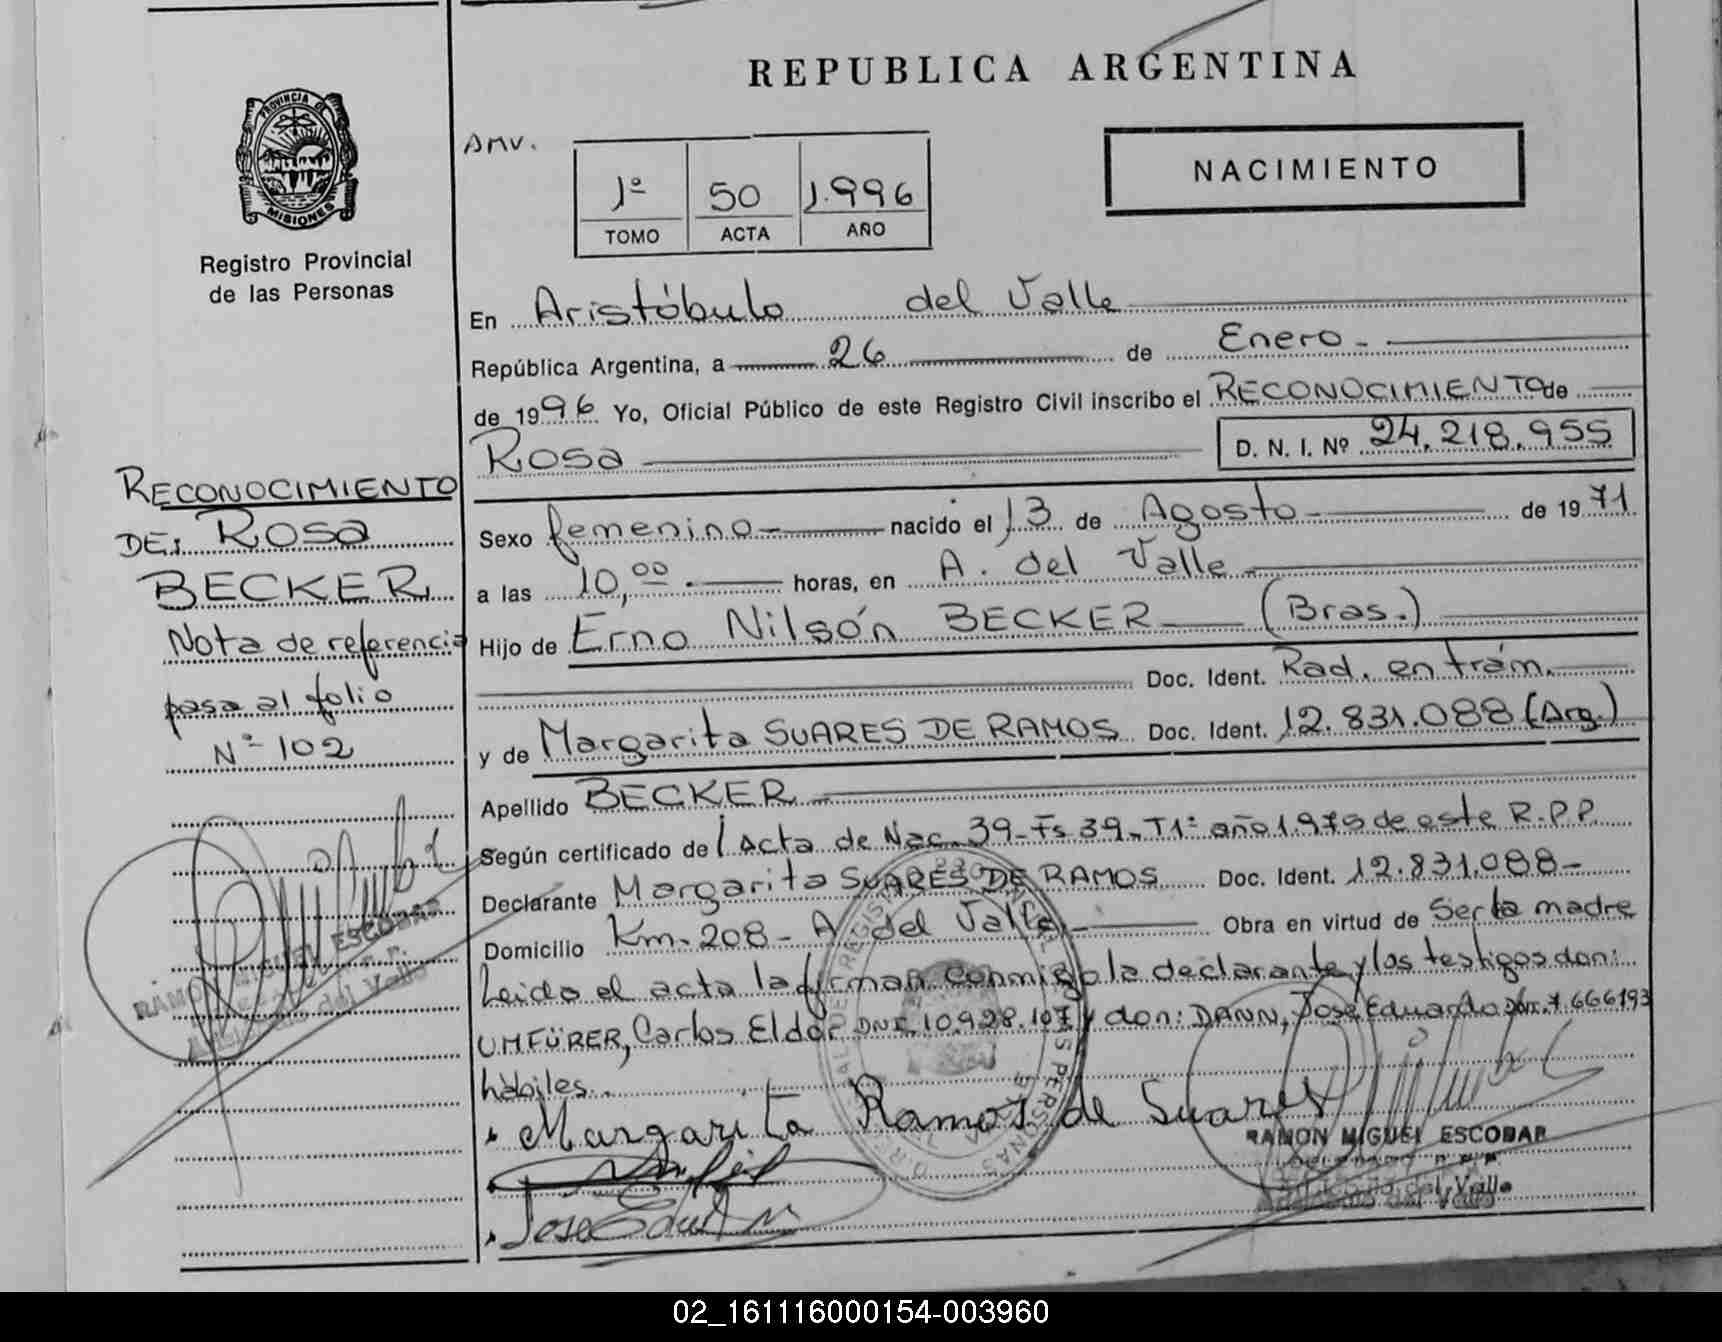 REPUBLICA ARGENTINA
PROVINCIA DE
MISIONES
Registro Provincial
de las Personas
AMV.
1º 50 1.996
TOMO ACTA AÑO
NACIMIENTO
En Aristóbulo del Valle
República Argentina, a 26 de Enero.
de 1996 Yo, Oficial Público de este Registro Civil inscribo el RECONOCIMIENTO de
Rosa D. N. I. Nº 24.218.955
Sexo femenino nacido el 13 de Agosto de 1971
a las 10,00 horas, en A. del Valle
Hijo de Erno Nilsón BECKER (Bras.)
Doc. Ident. Rad. en trám.
y de Margarita SUARES DE RAMOS Doc. Ident. 12.831.088 (Arg.)
Apellido BECKER
Según certificado de Acta de Nac. 39- Fs 39- T1º año 1.975 de este R.P.P.
Declarante Margarita SUARES DE RAMOS Doc. Ident. 12.831.088-
Domicilio Km. 208- A del Valle Obra en virtud de Ser la madre
Leido el acta la firman conmigo la declarante y los testigos don:
UMFÜRER, Carlos Eldor DNI. 10.928.107 y don: DANN, José Eduardo DNI. 7.666193
hábiles.
Margarita Ramos de Suares
RAMON MIGUEL ESCOBAR
del Valle
Jose Edu
RECONOCIMIENTO
DE: ROSA
BECKER
Nota de referencia
pasa al folio
Nº 102
RAMON MIGUEL ESCOBAR
del Valle
02_161116000154-003960